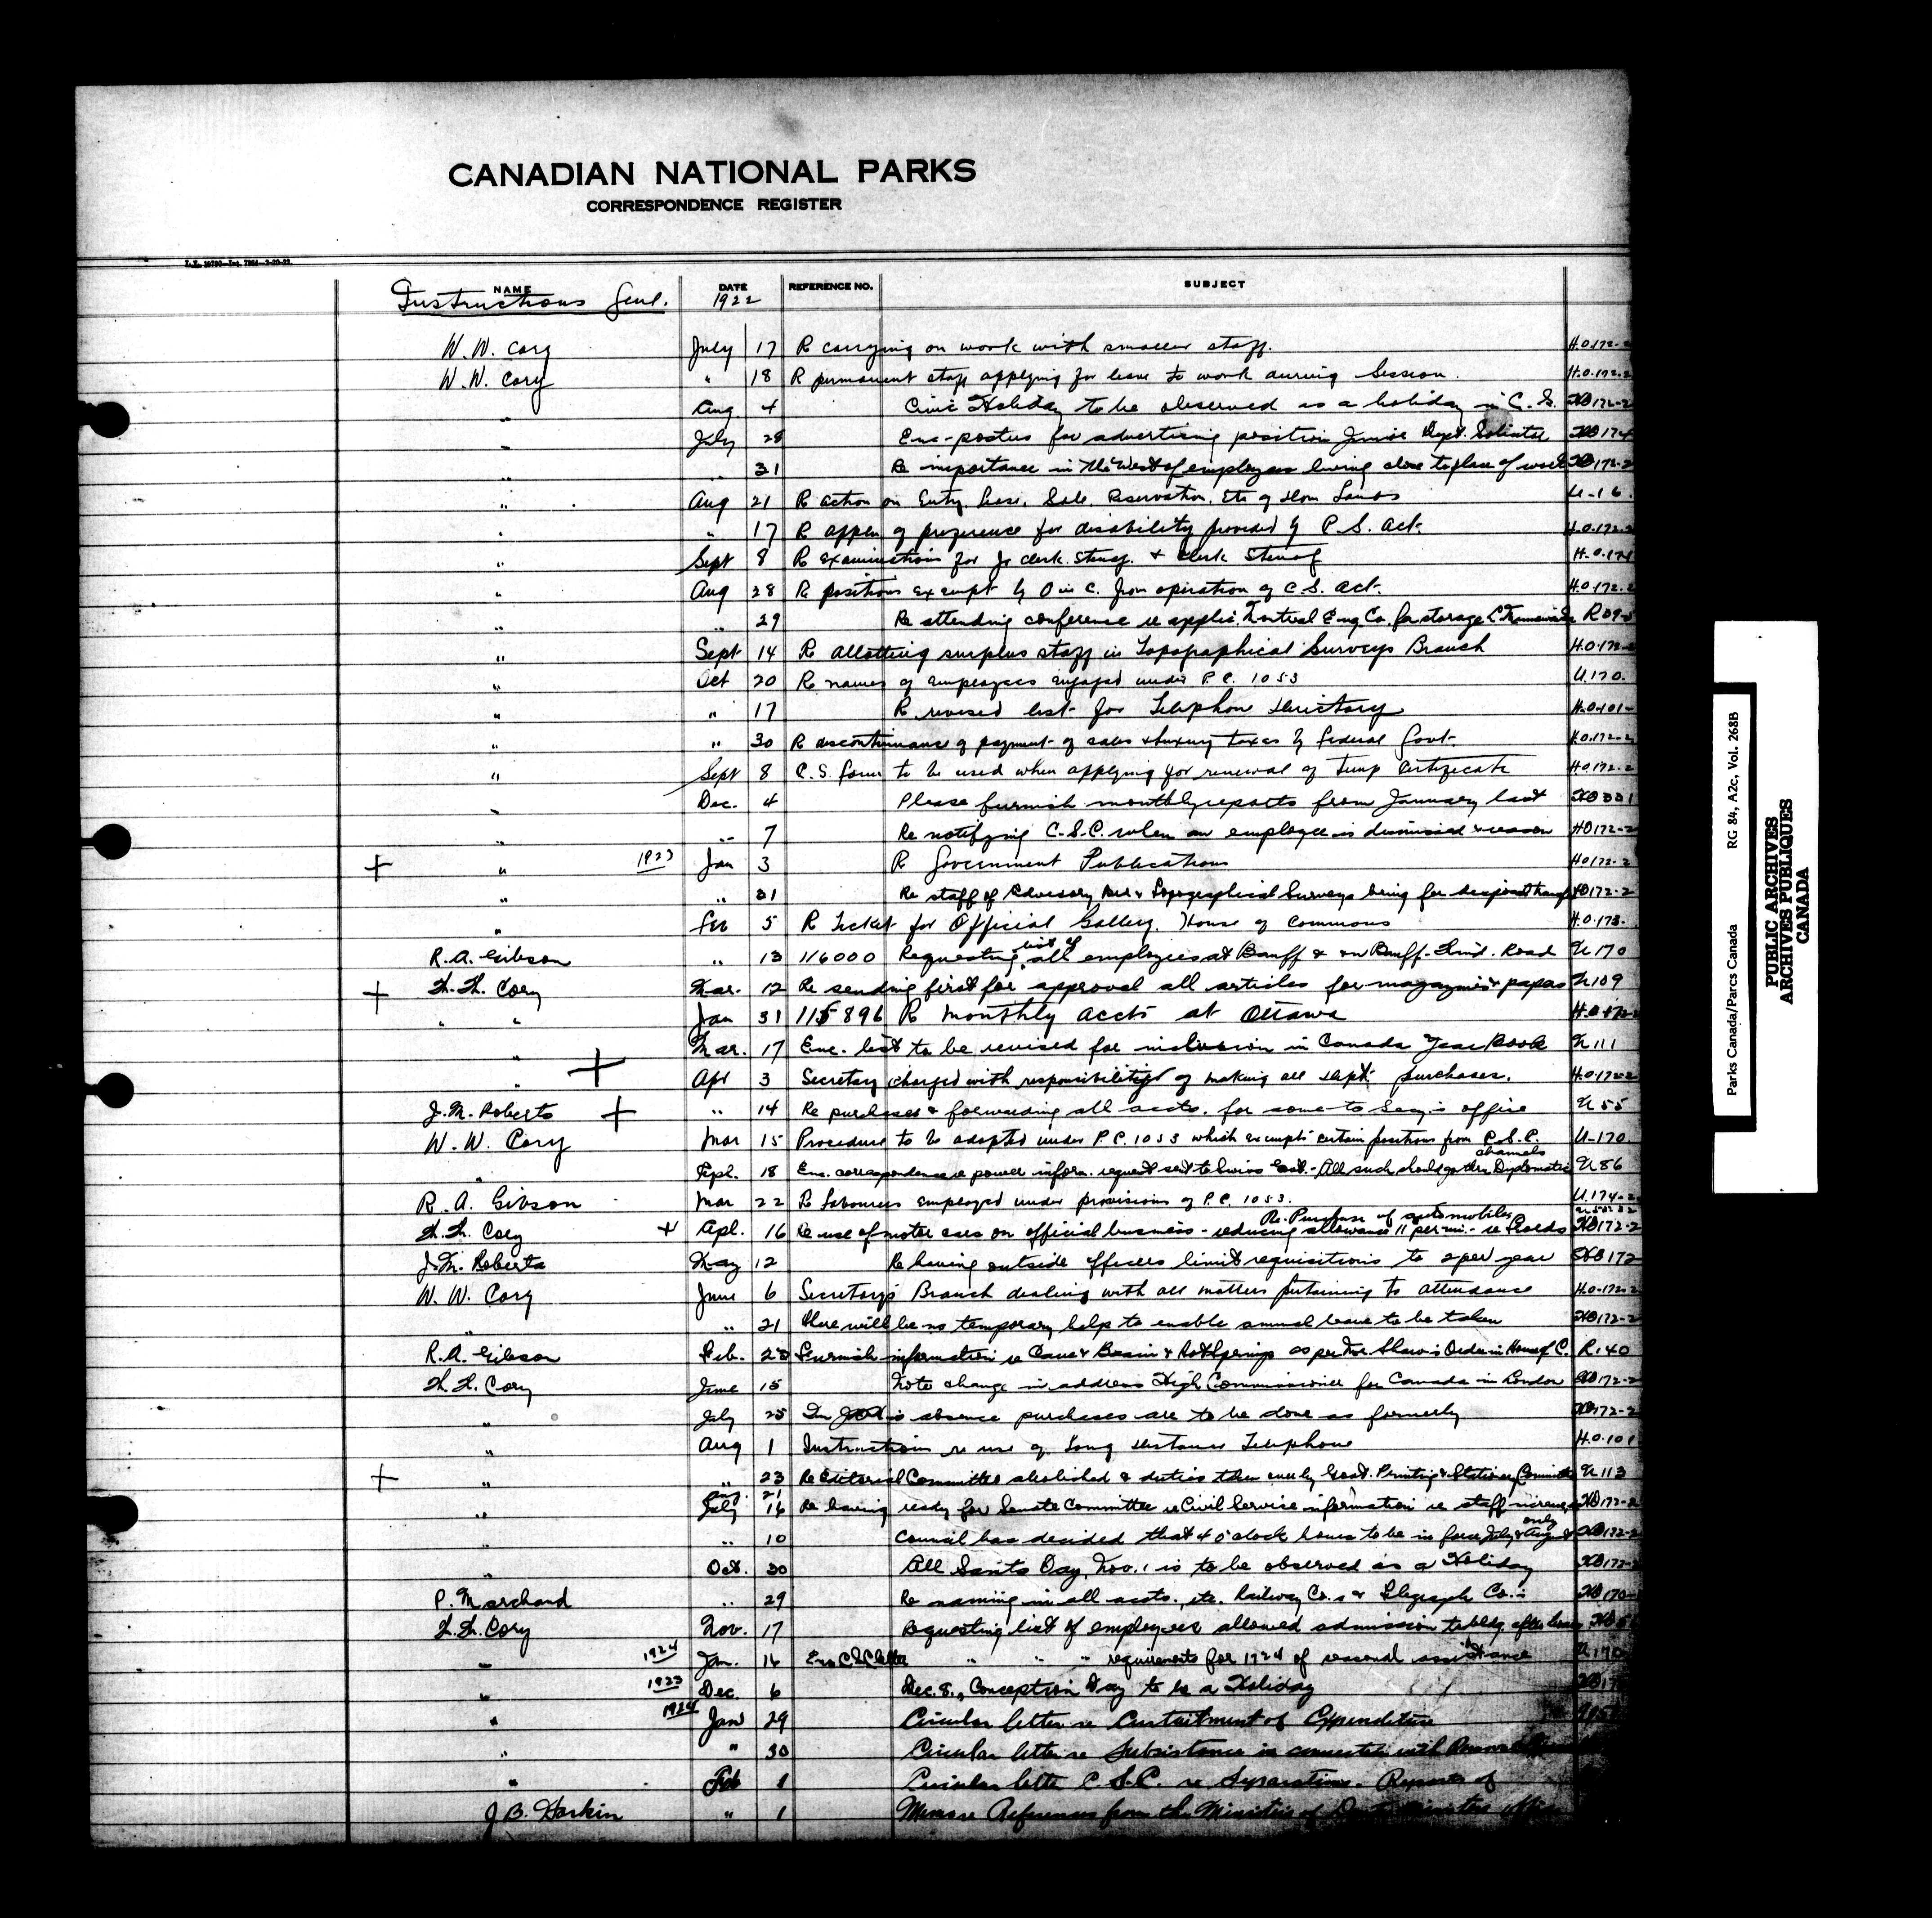 CANADIAN NATIONAL PARKS
CORRESPONDENCE REGISTER
NAME DATE REFERENCE NO. SUBJECT
Instructions Genl. 1922
W. W. Cory July 17 R carrying on work with smaller staff. H.O.172-2
W. W. Cory " 18 R permanent staff applying for leave to work during Session. H.O.172-2
" Aug 4 Civic Holiday to be observed as a holiday in C. S. HO172-2
" July 28 Enc-posters for advertising position Junior Dept. Solicitor HO174
" " 31 Re importance in the West of employees living close to place of work HO172-2
" Aug 21 R action on Entry, Lease, Sale, Reservation, Etc of Dom Lands U-16.
" " 17 R appln of preference for disability provided by C. S. Act. H.O.172-2
" Sept 8 R examinations for Jr clerk. Stenog. & Clerk Stenog H.O.174
" Aug 28 R positions exempt by O in C. from operation of C. S. Act. H.O.172-2
" " 29 Re attending conference re applic. Montreal Eng. Co. for storage L. Minnewanka R09-5
" Sept 14 R Allotting surplus staff in Topographical Surveys Branch H.O.172-2
" Oct 20 R names of employees engaged under P.C. 1053 U.170.
" " 17 R revised list for Telephone Directory H.O.101-
" " 30 R discontinuance of payment of sales & luxury taxes by Federal Govt. H.O.172-2
" Sept 8 C.S. form to be used when applying for renewal of Temp Certificate H.O.172-2
" Dec. 4 Please furnish monthly reports from January last HO331
" " 7 Re notifying C.S.C. when an employee is dismissed & reason HO172-2
+ " 1923 Jan 3 R Government Publications H.O.172-2
" " 31 Re staff of Advisory & Topographical Surveys being for HO172-2
" Feb 5 R Ticket for Official Gallery. House of Commons H.O.173.
R. A. Gibson " 13 116000 Requesting list of all employees at Banff & on Banff-Wind. Road U170
+ W. W. Cory Mar. 12 Re sending first for approval all articles for magazines & papers U109
" " Jan 31 115896 R Monthly accts at Ottawa H.O.172-2
" Mar. 17 Enc. list to be revised for inclusion in Canada Year Book U111
" + Apr 3 Secretary charged with responsibility of making all Dept. purchases. H.O.172-2
J. M. Roberts + " 14 Re purchases & forwarding all accts. for same to Secy's office U55
W. W. Cory Mar 15 Procedure to be adopted under P.C. 1053 which exempts certain positions from C.S.C. U-170
" Apl. 18 Enc. correspondence re power inform. request sent to Swiss Govt.- All such should go thru Diplomatic channels U86
R. A. Gibson Mar 22 R Labourers employed under provisions of P.C. 1053. U.174-2
W. W. Cory + Apl. 16 Re use of motor cars on official business - reducing allowance 11 per mi. - re Fords Re. Purchase of automobiles HO172-2
J. M. Roberts May 12 Re having outside officers limit requisitions to 2 per year HO172
W. W. Cory June 6 Secretary's Branch dealing with all matters pertaining to attendance H.O.172-2
" " 21 There will be no temporary help to enable annual leave to be taken HO172-2
R. A. Gibson Feb. 28 Furnish information re Cave & Basin & Hot Springs as per Mr. Shaw's Order in House of C. R.40
W. W. Cory June 15 Note change in address High Commissioner for Canada in London HO172-2
" July 25 In absence purchases are to be done as formerly HO172-2
" Aug 1 Instructions re use of Long Distance Telephone H.O.101
+ " " 23 Re Editorial Committee abolished & duties taken over by Govt. Printing & Stationery Committee U113
" Aug. 21 July 16 Re having ready for Senate Committee re Civil Service information re staff increases HO172-2
" " 10 Council has decided that 4 o'clock hours to be in force July & August only HO172-2
" Oct. 30 All Saints Day, Nov. 1 is to be observed as a Holiday HO172-2
P. Marchand " 29 Re naming in all accts., etc. Railway Co.s & Telegraph Co.s HO170-
W. W. Cory Nov. 17 Requesting list of employees allowed admission to bldg. after hours HO
" 1924 Jan. 16 Enc C.S.C letter " " " requirements for 1924 of seasonal assistance U170
" 1923 Dec. 6 Dec. 8., Conception Day to be a Holiday
" 1924 Jan 29 Circular letter re Curtailment of Expenditure
" " 30 Circular letter re Subsistance in connection with Removal
" Feb 1 Circular letter C.S.C. re Separations. Reports of
J. B. Harkin " 1 References from the Ministers or Deputy Ministers office
PUBLIC ARCHIVES
ARCHIVES PUBLIQUES
CANADA
Parks Canada/Parcs Canada RG 84, A2c, Vol. 268B